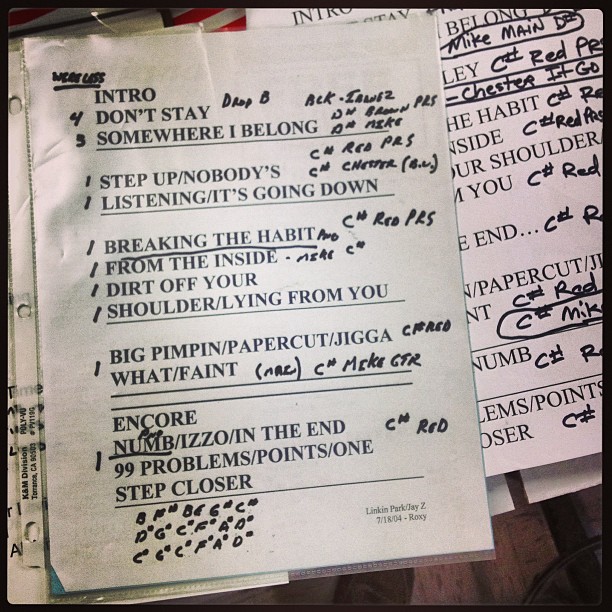 WIRELESS
INTRO
4 DON'T STAY Drop B BLK-IBANEZ
3 SOMEWHERE I BELONG D# BROWN PRS
D# MIKE
C# RED PRS
1 STEP UP/NOBODY'S C# CHESTER (B.U.)
1 LISTENING/IT'S GOING DOWN
C# RED PRS
1 BREAKING THE HABIT
1 FROM THE INSIDE - MIKE C#
1 DIRT OFF YOUR
1 SHOULDER/LYING FROM YOU
1 BIG PIMPIN/PAPERCUT/JIGGA C# RED
WHAT/FAINT C# MIKE GTR
ENCORE
NUMB/IZZO/IN THE END C# RED
1 99 PROBLEMS/POINTS/ONE
STEP CLOSER
Linkin Park/Jay Z
7/18/04 - Roxy
K&M Division
Torrance, CA 90501
INTRO
STAY
I BELONG
Mike MAIN D#
LEY C# Red PRS
- Chester It Go
HE HABIT C# Re
NSIDE C# Red PRS
UR SHOULDER/
M YOU C# Red
E END...C# R
N/PAPERCUT/JI
NT C# Red
C# Mik
NUMB C# Re
LEMS/POINTS
OSER C#